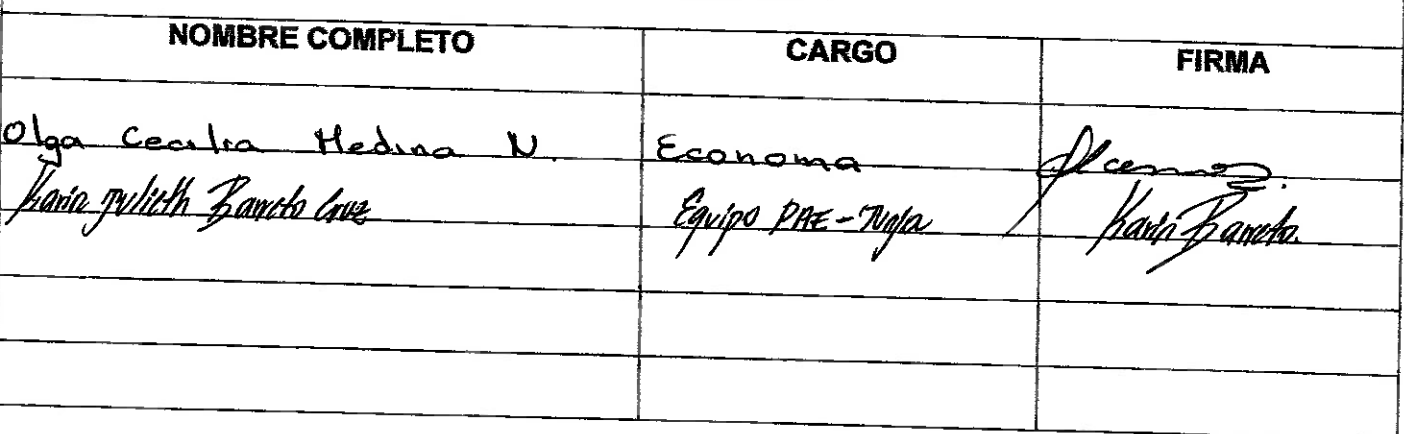 NOMBRE COMPLETO CARGO FIRMA
Olga Cecilia Medina N. Economa
Karin Julieth Barreto Cruz Equipo PAE-Tunja Karin Barreto.